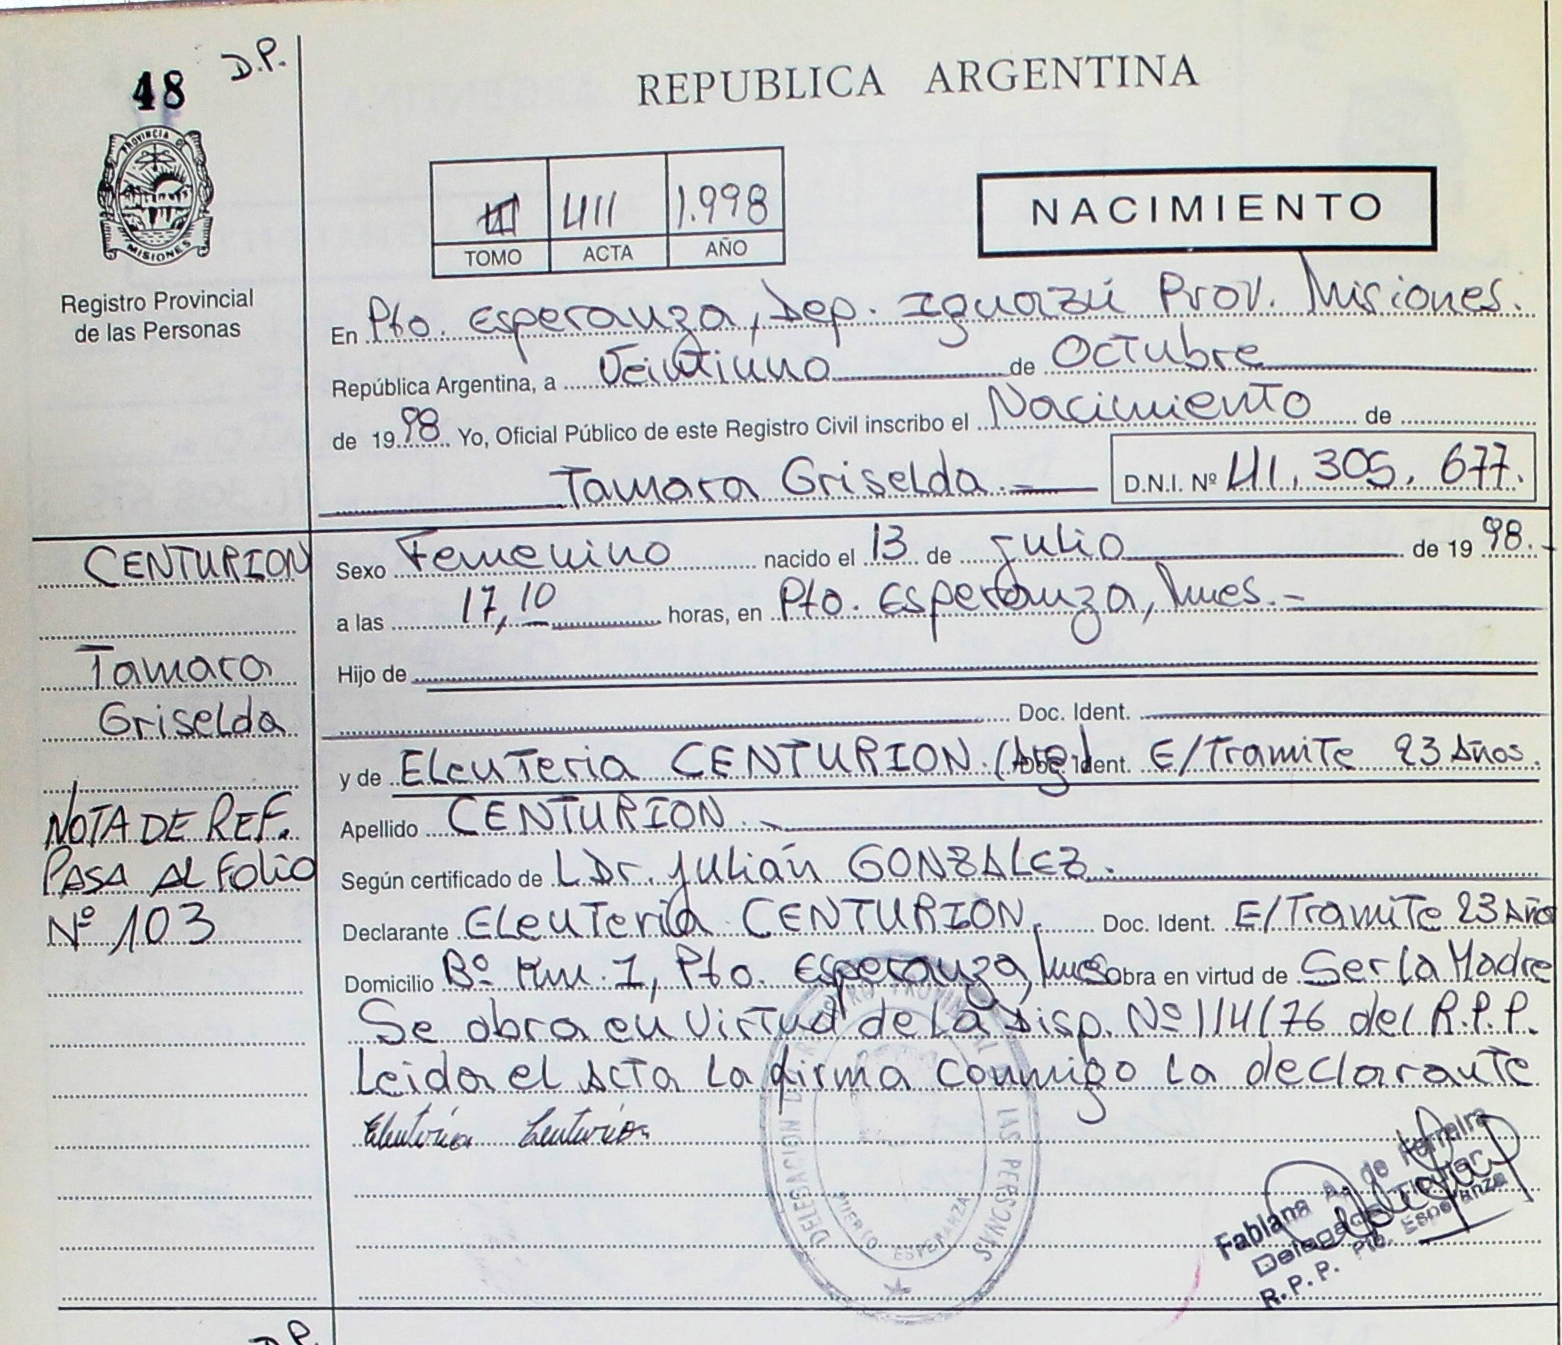 48 D.P.
PROVINCIA DE
MISIONES
Registro Provincial
de las Personas
REPUBLICA ARGENTINA
III 411 1.998
TOMO ACTA AÑO
NACIMIENTO
En Pto. Esperanza, Dep. Iguazú Prov. Misiones.
República Argentina, a Veintiuno de Octubre
de 1998 Yo, Oficial Público de este Registro Civil inscribo el Nacimiento de
Tamara Griselda.- D.N.I. Nº 41.305.677.
CENTURION
Tamara
Griselda
NOTA DE REF.
PASA AL FOLIO
Nº 103
Sexo Femenino nacido el 13 de julio de 1998.-
a las 17,10 horas, en Pto. Esperanza, Mnes.-
Hijo de
Doc. Ident.
y de Eleuteria CENTURION. (Arg) Doc. Ident. E/Tramite 23 Años.
Apellido CENTURION.-
Según certificado de L Dr. Julián GONZALEZ.
Declarante Eleuteria CENTURION. Doc. Ident. E/Tramite 23 Años
Domicilio Bº Km. 1, Pto. Esperanza, Mnes obra en virtud de Ser la Madre
Se obra en Virtud de la Disp. Nº 114/76 del R.P.P.
Leida el Acta La firma conmigo la declarante
Eleuteria Centurion
DELEGACION REGISTRO PROVINCIAL DE LAS PERSONAS
PUERTO ESPERANZA
Fabiana A. de Ferreira
Delegada Titular
R.P.P. Pto. Esperanza
D.P.